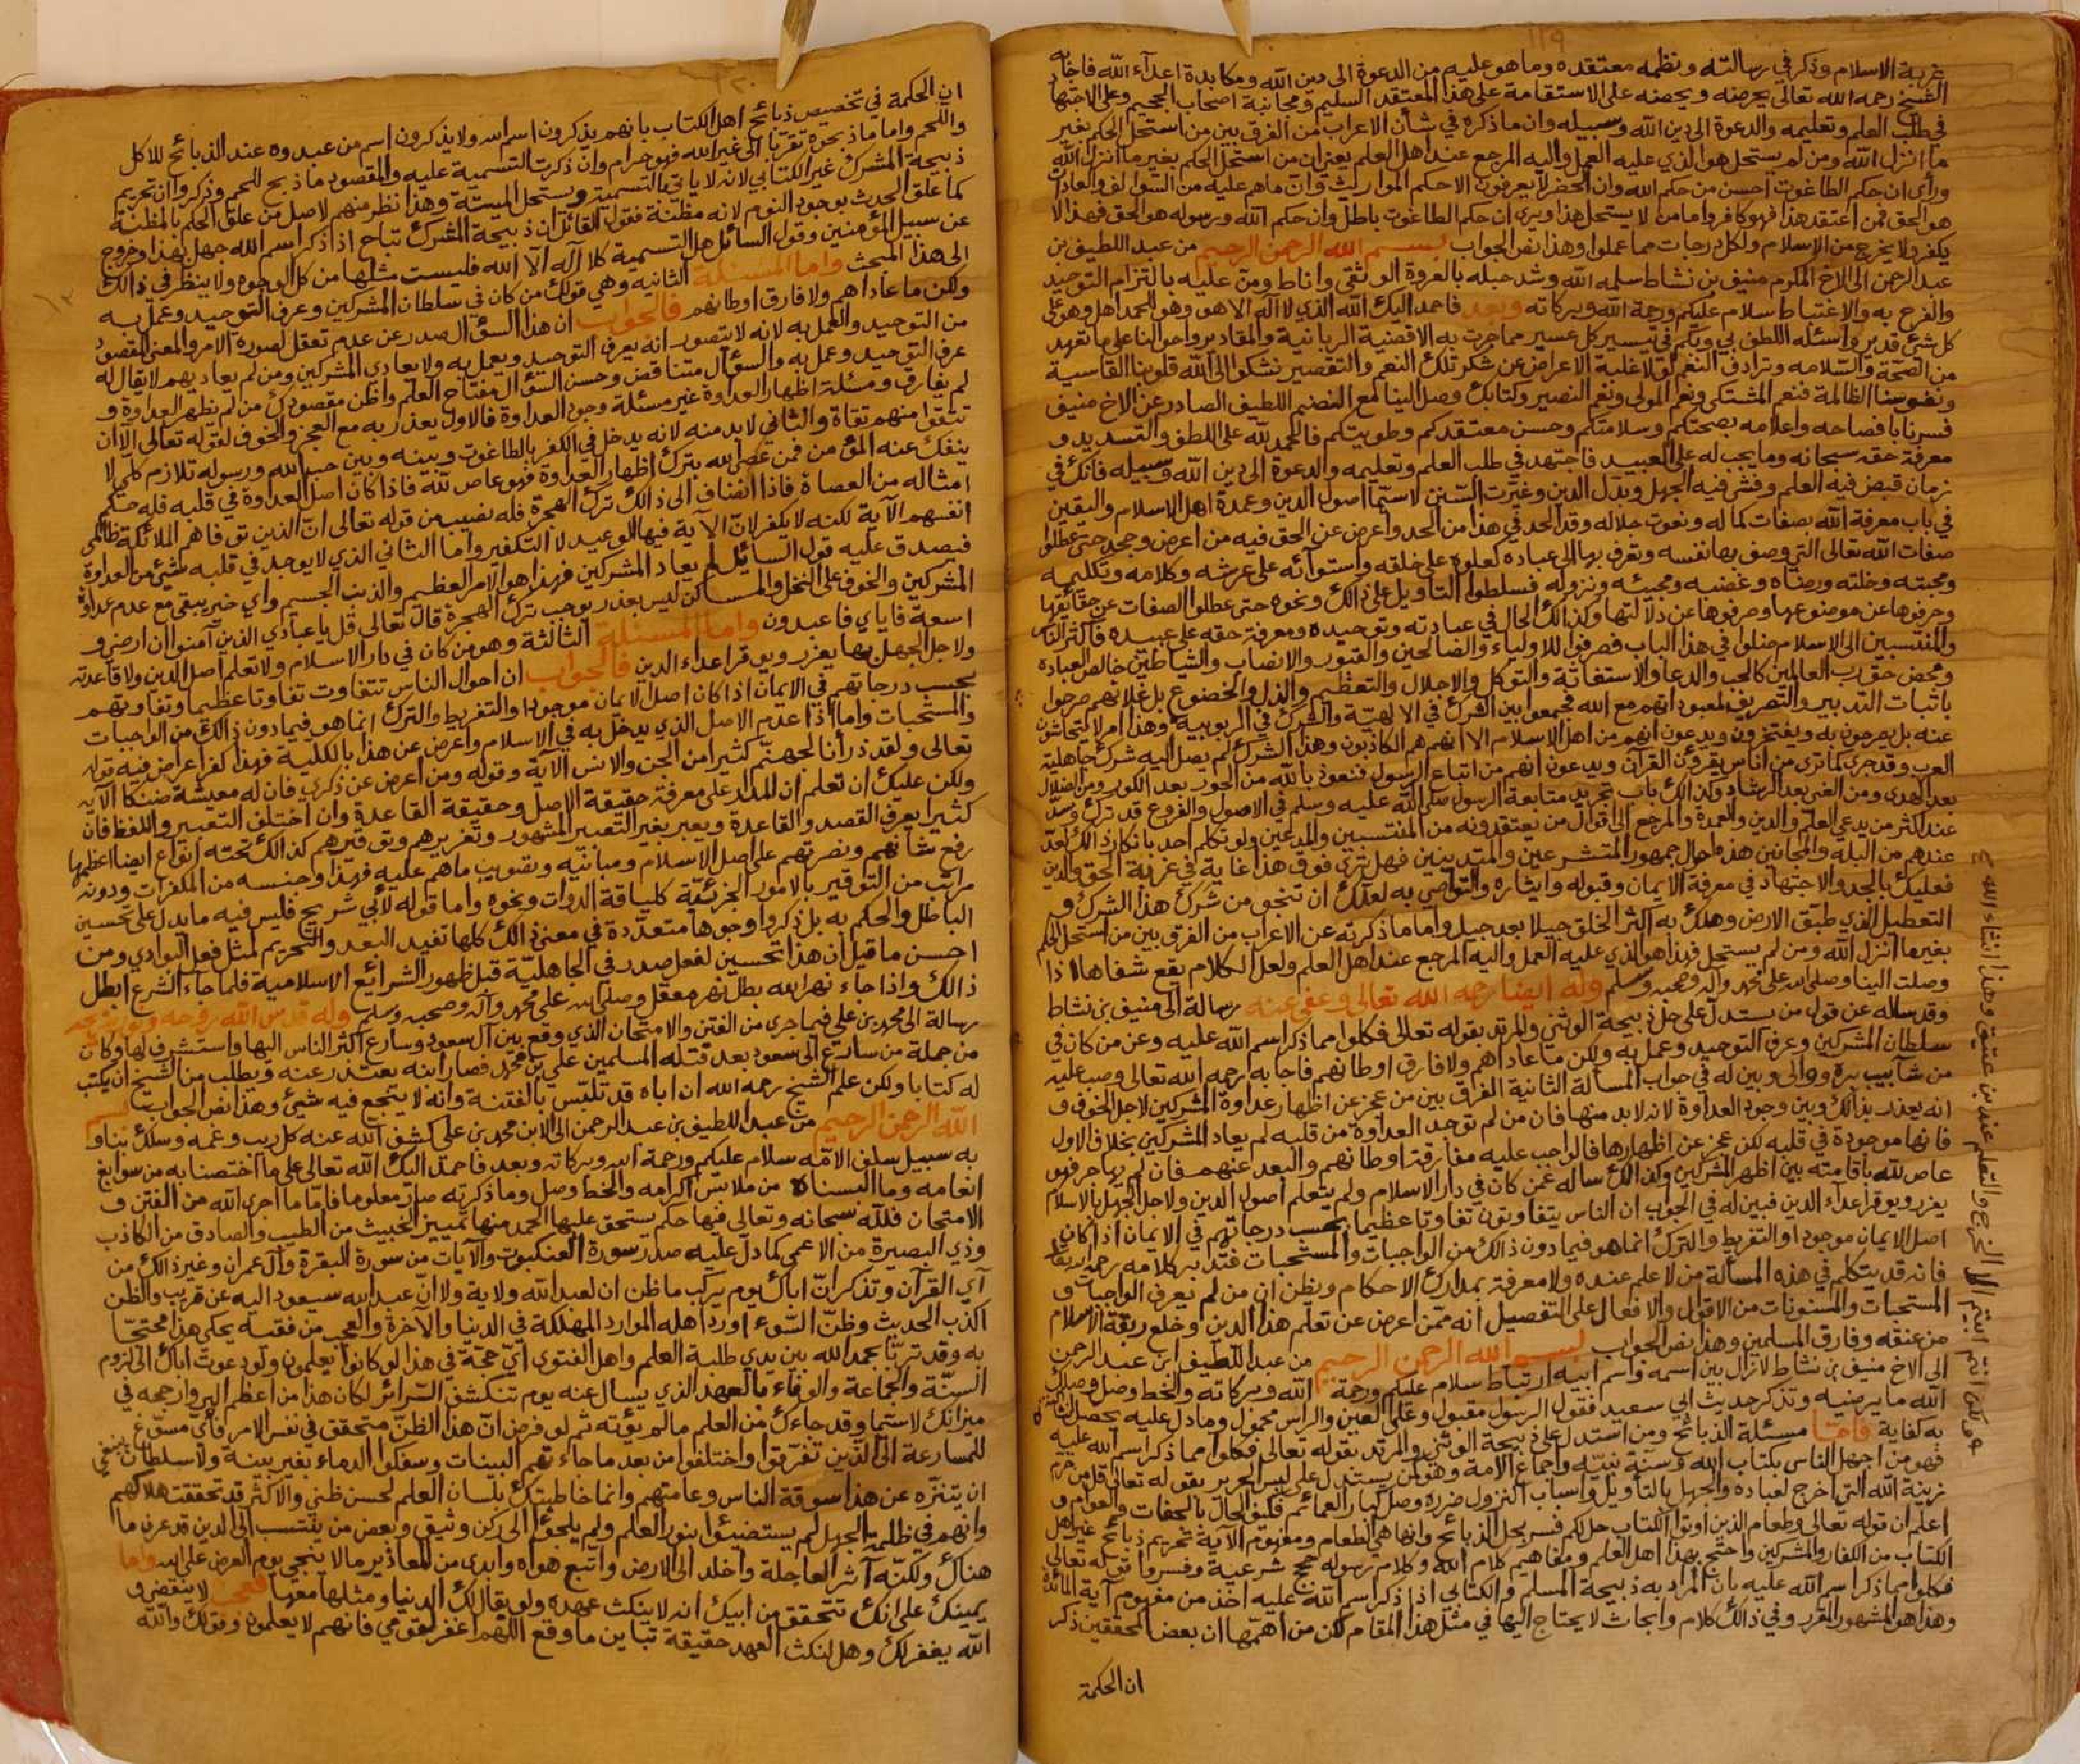 ١١٩
غربة الاسلام وذكر في رسالته ونظمه معتقده وما هو عليه من الدعوة الى دين الله ومكابدة اعداء الله فاجابه
الشيخ رحمه الله تعالى يحرضه ويحضه على الاستقامة على هذا المعتقد السليم ومجانبة اصحاب الجحيم وعلى الاجتهاد
في طلب العلم وتعليمه والدعوة الى دين الله وسبيله وان ما ذكره في شأن الاعراب من الفرق بين من استحل الحكم بغير
ما انزل الله ومن لم يستحل هو الذي عليه العمل واليه المرجع عند اهل العلم يعني ان من استحل الحكم بغير ما انزل الله
ورأى ان حكم الطاغوت احسن من حكم الله وان الحضر لا يعرفون الا حكم المواريث وان ما هم عليه من السوالف والعادات
هو الحق فمن اعتقد هذا فهو كافر واما من لا يستحل هذا ويرى ان حكم الطاغوت باطل وان حكم الله ورسوله هو الحق فهذا لا
يكفر ولا يخرج من الاسلام ولكل درجات مما عملوا وهذا نص الجواب بسم الله الرحمن الرحيم من عبد اللطيف بن
عبد الرحمن الى الاخ المكرم منيف بن نشاط سلمه الله وشد حبله بالعروة الوثقى واناط ومن عليه بالتزام التوحيد
والفرح به والاغتباط سلام عليكم ورحمة الله وبركاته وبعد فاحمد اليك الله الذي لا اله الا هو وهو للحمد اهل وهو على
كل شيء قدير واسئله اللطف بي وبكم في تيسير كل عسير مما جرت به الاقضية الربانية والمقادير واحوالنا على ما تعهد
من الصحة والسلامه وترادف النعم لولا غلبة الاعراض عن شكر تلك النعم والتقصير نشكوا الى الله قلوبنا القاسية
ونفوسنا الظالمة فنعم المشتكى ونعم المولى ونعم النصير وكتابك وصل الينا مع النضم اللطيف الصادر عن الاخ منيف
فسرنا بافصاحه واعلامه بصحتكم وسلامتكم وحسن معتقدكم وطويتكم فالحمد لله على اللطف والتسديد و
معرفة حقه سبحانه وما يجب له على العبيد فاجتهد في طلب العلم وتعليمه والدعوة الى دين الله وسبيله فانك في
زمان قبض فيه العلم وفشى فيه الجهل وبدل الدين وغيرت السنن لاسيما اصول الدين وعمدة اهل الاسلام واليقين
في باب معرفة الله بصفات كماله ونعوت جلاله وقد الحد في هذا من الحد واعرض عن الحق فيه من اعرض وجحد حتى عطلوا
صفات الله تعالى التي وصف بها نفسه وتعرف بها الى عباده كعلوه على خلقه واستوائه على عرشه وكلامه وتكليمه
ومحبته وخلته ورضاه وغضبه ومجيئه ونزوله فسلطوا التاويل على ذالك ونحوه حتى عطلوا الصفات عن حقائقها
وحرفوها عن موضوعها وصرفوها عن دلالتها وكذالك الحال في عبادته وتوحيده ومعرفة حقه على عبيده فاكثر الناس
والمنتسبين الى الاسلام ضلوا في هذا الباب فصرفوا للاولياء والصالحين والقبور والانصاب والشياطين خالص العبادة
ومحض حق رب العالمين كالحب والدعاء والاستغاثة والتوكل والاجلال والتعظيم والذل والخضوع بل غلاتهم صرحوا
باثبات التدبير والتصريف لمعبوداتهم مع الله فجمعوا بين الشرك في الالهية والشرك في الربوبية وهذا امر لا يتحاشون
عنه بل يصرحون به ويفتخرون ويدعون انهم من اهل الاسلام الا انهم هم الكاذبون وهذا الشرك لم يصل اليه شرك جاهلية
العرب وقد جرى كما ترى من اناس يقرؤن القرآن ويدعون انهم من اتباع الرسول فنعوذ بالله من الحور بعد الكور ومن الضلال
بعد الهدى ومن الغي بعد الرشاد وكذالك باب تجريد متابعة الرسول صلى الله عليه وسلم في الاصول والفروع قد ترك وسد
عند اكثر من يدعي العلم والدين والعمدة والمرجع الى اقوال من يعتقدونه من المنتسبين والمدعين ولو تكلم احد بانكار ذالك لعد
عندهم من البله والمجانين هذا حال جمهور المتشرعين والمتدينين فهل ترى فوق هذا غاية في غربة الحق والدين
فعليك بالجد والاجتهاد في معرفة الايمان وقبوله وايثاره والتواصي به لعلك ان تنجو من شرك هذا الشرك و
التعطيل الذي طبق الارض وهلك به اكثر الخلق جيلا بعد جيل واما ما ذكرته عن الاعراب من الفرق بين من استحل الحكم
بغير ما انزل الله ومن لم يستحل فهذا هو الذي عليه العمل واليه المرجع عند اهل العلم ولعل الكلام يقع شفاها اذا
وصلت الينا وصلى الله على محمد وآله وصحبه وسلم وله ايضا رحمه الله تعالى وعفى عنه رسالة الى منيف بن نشاط
وقد سأله عن قول من يستدل على حل ذبيحة الوثني والمرتد بقوله تعالى فكلوا مما ذكر اسم الله عليه وعن من كان في
سلطان المشركين وعرف التوحيد وعمل به ولكن ما عاداهم ولا فارق اوطانهم فاجابه رحمه الله تعالى وصب عليه
من شآبيب بره ووالى وبين له في جواب المسألة الثانية الفرق بين من عجز عن اظهار عداوة المشركين لاجل الخوف و
انه يعذر بذالك وبين وجود العداوة لانه لابد منها فان من لم توجد العداوة من قلبه لم يعاد المشركين بخلاف الاول
فانها موجودة في قلبه لكن عجز عن اظهارها فالواجب عليه مفارقة اوطانهم والبعد عنهم فان لم يهاجر فهو
عاص لله باقامته بين اظهر المشركين وكذالك سأله عمن كان في دار الاسلام ولم يتعلم اصول الدين ولاجل الجهل بالاسلام
يعزر ويوقر اعداء الدين فبين له في الجواب ان الناس يتفاوتون تفاوتا عظيما بحسب درجاتهم في الايمان اذا كان
اصل الايمان موجودا والتفريط والترك انما هو فيما دون ذالك من الواجبات والمستحبات فتدبر كلامه رحمه الله تعالى
فانه قد يتكلم في هذه المسألة من لا علم عنده ولا معرفة بمدارك الاحكام ويظن ان من لم يعرف الواجبات و
المستحبات والمسنونات من الاقوال والافعال على التفصيل انه ممن اعرض عن تعلم هذا الدين وخلع ربقة الاسلام
من عنقه وفارق المسلمين وهذا نص الجواب بسم الله الرحمن الرحيم من عبد اللطيف ابن عبد الرحمن
الى الاخ منيف بن نشاط لازال بين اسمه واسم ابيه ارتباط سلام عليكم ورحمة الله وبركاته والخط وصل وصلك
الله ما يرضيه وتذكر حديث ابي سعيد فقول الرسول مقبول وعلى العين والراس محمول وما دل عليه يحصل
به كفاية فامـا مسئلة الذبائح ومن استدل على ذبيحة الوثني والمرتد بقوله تعالى فكلوا مما ذكر اسم الله عليه
فهو من اجهل الناس بكتاب الله وسنة نبيه واجماع الامة وهو كمن يستدل على لبس الحرير بقوله تعالى قل من حرم
زينة الله التي اخرج لعباده والجهل بالتأويل واسباب النزول ضرره وصل كبار العمائم فكيف الحال بالجفات والعوام و
اعلم ان قوله تعالى وطعام الذين اوتوا الكتاب حل لكم فسر بحل الذبائح وانها هي الطعام ومفهوم الآية تحريم ذبائح غير اهل
الكتاب من الكفار والمشركين واحتج بهذا اهل العلم ومفاهيم كلام الله وكلام رسوله حجج شرعية وفسروا قوله تعالى
فكلوا مما ذكر اسم الله عليه بان المراد به ذبيحة المسلم والكتابي اذا ذكر اسم الله عليه اخذ من مفهوم آية المائدة
وهذا هو المشهور المقرر وفي ذالك كلام وابحاث لا يحتاج اليها في مثل هذا المقام لكن من اهمها ان بعض المحققين ذكر
ان الحكمة
١٢٠
ان الحكمة في تخصيص ذبائح اهل الكتاب بانهم يذكرون اسم الله ولا يذكرون اسم من عبدوه عند الذبائح للاكل
واللحم واما ما ذبحوه تقربا الى غير الله فهو حرام وان ذكرت التسمية عليه والمقصود ما ذبح للحم وذكروا ان تحريم
ذبيحة المشرك غير الكتابي لانه لا ياتي بالتسمية ويستحل الميتة وهذا نظر منهم لاصل من علق الحكم بالمظنة
كما علق الحدث بوجود النوم لانه مظنة فقول القائل ان ذبيحة المشرك تباح اذا ذكر اسم الله جهل بهذا وخروج
عن سبيل المؤمنين وقول السائل هل التسمية كلا اله الا الله فليست مثلها من كل الوجوه ولا ينظر في ذالك
الى هذا المبحث واما المسئلة الثانيه وهي قولك من كان في سلطان المشركين وعرف التوحيد وعمل به
ولكن ما عاداهم ولا فارق اوطانهم فالجواب ان هذا السؤال صدر عن عدم تعقل لصورة الامر والمعنى المقصود
من التوحيد والعمل به لانه لا يتصور انه يعرف التوحيد ويعمل به ولا يعادي المشركين ومن لم يعاديهم لا يقال له
عرف التوحيد وعمل به والسؤال متناقض وحسن السؤال مفتاح العلم واظن مقصودك من لم يظهر العداوة و
لم يفارق ومسئلة اظهار العداوة غير مسئلة وجود العداوة فالاول يعذر به مع العجز والخوف لقوله تعالى الا ان
تتقوا منهم تقاة والثاني لابد منه لانه يدخل في الكفر بالطاغوت وبينه وبين حب الله ورسوله تلازم كلي لا
ينفك عنه المؤمن فمن عصى الله بترك اظهار العداوة فهو عاص لله فاذا كان اصل العداوة في قلبه فله حكم
امثاله من العصاة فاذا انضاف الى ذالك ترك الهجرة فله نصيب من قوله تعالى ان الذين توفاهم الملائكة ظالمي
انفسهم الآية لكنه لا يكفر لان الآية فيها الوعيد لا التكفير واما الثاني الذي لا يوجد في قلبه شيء من العداوة
فيصدق عليه قول السائل لم يعاد المشركين فهذا هو الامر العظيم والذنب الجسيم واي خير يبقى مع عدم عداوة
المشركين والخوف على النخل والمساكن ليس بعذر يوجب ترك الهجرة قال تعالى قل يا عبادي الذين آمنوا ان ارضي و
اسعة فاياي فاعبدون واما المسئلة الثالثة وهو من كان في دار الاسلام ولا تعلم اصل الدين ولا قاعدته
ولاجل الجهل بها يعزر ويوقر اعداء الدين فالجواب ان احوال الناس تتفاوت تفاوتا عظيما وتفاوتهم
بحسب درجاتهم في الايمان اذا كان اصل الايمان موجودا والتفريط والترك انما هو فيما دون ذالك من الواجبات
والمستحبات واما اذا عدم الاصل الذي يدخل به في الاسلام واعرض عن هذا بالكلية فهذا كفر اعراض فيه قوله
تعالى ولقد ذرأنا لجهنم كثيرا من الجن والانس الآية وقوله ومن اعرض عن ذكري فان له معيشة ضنكا الآيه
ولكن عليك ان تعلم ان المدار على معرفة حقيقة الاصل وحقيقة القاعدة وان اختلف التعبير واللفظ فان
كثيرا يعرف القصد والقاعدة ويعبر بغير التعبير المشهور وتعزيرهم وتوقيرهم كذالك تحته انواع ايضا اعظمها
رفع شانهم ونصرتهم على اصل الاسلام ومبانيه وتصويب ماهم عليه فهذا وجنسه من المكفرات ودونه
مراتب من التوقير بالامور الجزئية كلياقة الدوات ونحوه واما قوله لأبي شريح فليس فيه ما يدل على تحسين
الباطل والحكم به بل ذكروا وجوها متعددة في معنى ذالك كلها تفيد البعد والتحريم لمثل فعل البوادي ومن
احسن ما قيل ان هذا تحسين لفعل صدر في الجاهلية قبل ظهور الشرائع الاسلامية فلما جاء الشرع ابطل
ذالك واذا جاء نهر الله بطل نهر معقل وصلى الله على محمد وآله وصحبه وسلم وله قدس الله روحه ونور ضريحه
رسالة الى محمد بن علي فيما جرى من الفتن والامتحان الذي وقع بين آل سعود وسارع اكثر الناس اليها واستشرف لها وكان
من جملة من سارع الى سعود بعد قتله المسلمين علي بن محمد فصار ابنه يعتذر عنه ويطلب من الشيخ ان يكتب
له كتابا ولكن علم الشيخ رحمه الله ان اباه قد تلبس بالفتنة وانه لا ينجع فيه شيئ وهذا نص الجواب بسم
الله الرحمن الرحيم من عبد اللطيف بن عبد الرحمن الى الابن محمد بن علي كشف الله عنه كل ريب وغمه وسلك بنا و
به سبيل سلف الامه سلام عليكم ورحمة الله وبركاته وبعد فاحمد اليك الله تعالى على ما اختصنا به من سوابغ
انعامه وما البسناه من ملابس اكرامه والخط وصل وما ذكرته صار معلوما فاما ما اجرى الله من الفتن و
الامتحان فلله سبحانه وتعالى فيها حكم يستحق عليها الحمد منها تمييز الخبيث من الطيب والصادق من الكاذب
وذي البصيرة من الاعمى كما دل عليه صدر سورة العنكبوت والآيات من سورة البقرة وآل عمران وغير ذالك من
آي القرآن وتذكر ان اباك يوم يركب ما ظن ان لعبد الله ولاية ولا ان عبد الله سيعود اليه عن قريب والظن
اكذب الحديث وظن السوء اورد اهله الموارد المهلكة في الدنيا والآخرة والعجب من فقيه يحكي هذا محتجا
به وقد تربا بحمد الله بين يدي طلبة العلم واهل الفتوى اي حجة في هذا لو كانوا يعلمون ولو دعوت اباك الى لزوم
السنة والجماعة والوفاء بالعهد الذي يسال عنه يوم تنكشف السرائر لكان هذا من اعظم البر وارجحه في
ميزانك لاسيما وقد جاءك من العلم مالم يؤته ثم لو فرض ان هذا الظن متحقق في نفس الامر فاي مسوغ
للمسارعة الى الذين تفرقوا واختلفوا من بعد ما جاءتهم البينات وسفكوا الدماء بغير بينة ولا سلطان ينبغي
ان يتنزه عن هذا سوقة الناس وعامتهم وانما خاطبتك بلسان العلم لحسن ظني والاكثر قد تحققت هلاكهم
وانهم في ظلمة الجهل لم يستضيئوا بنور العلم ولم يلجئوا الى ركن وثيق وبعض من ينتسب الى الدين قد عرف ما
هناك ولكنه آثر العاجلة واخلد الى الارض واتبع هواه وابدى من المعاذير ما لا ينجي يوم العرض على الله واما
يمينك على انك تتحقق من ابيك انه لا ينكث عهده ولو يقال لك الدنيا ومثلها معها فعجب لا ينقضي و
الله يغفر لك وهل لنكث العهد حقيقة تباين ما وقع اللهم اغفر لقومي فانهم لا يعلمون وقولك والله